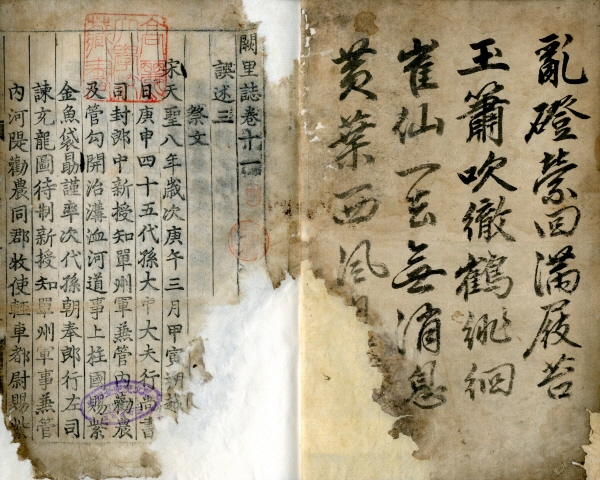 亂磴縈回滿屐苔
玉簫吹徹鶴
崔仙一去無消息
黃葉西風
闕里誌卷十一
譔述三
祭文
宋天聖八年歲次庚午三月甲寅朔越
日庚申四十五代孫大中大夫行尚書
司封郎中新授知單州軍兼管內勸農
及管勾開治溝洫河道事上柱國賜紫
金魚袋勗謹率次代孫朝奉郎行左司
諫充龍圖待制新授知單州軍事兼管
內河隄勸農同郡牧使輕車都尉賜紫